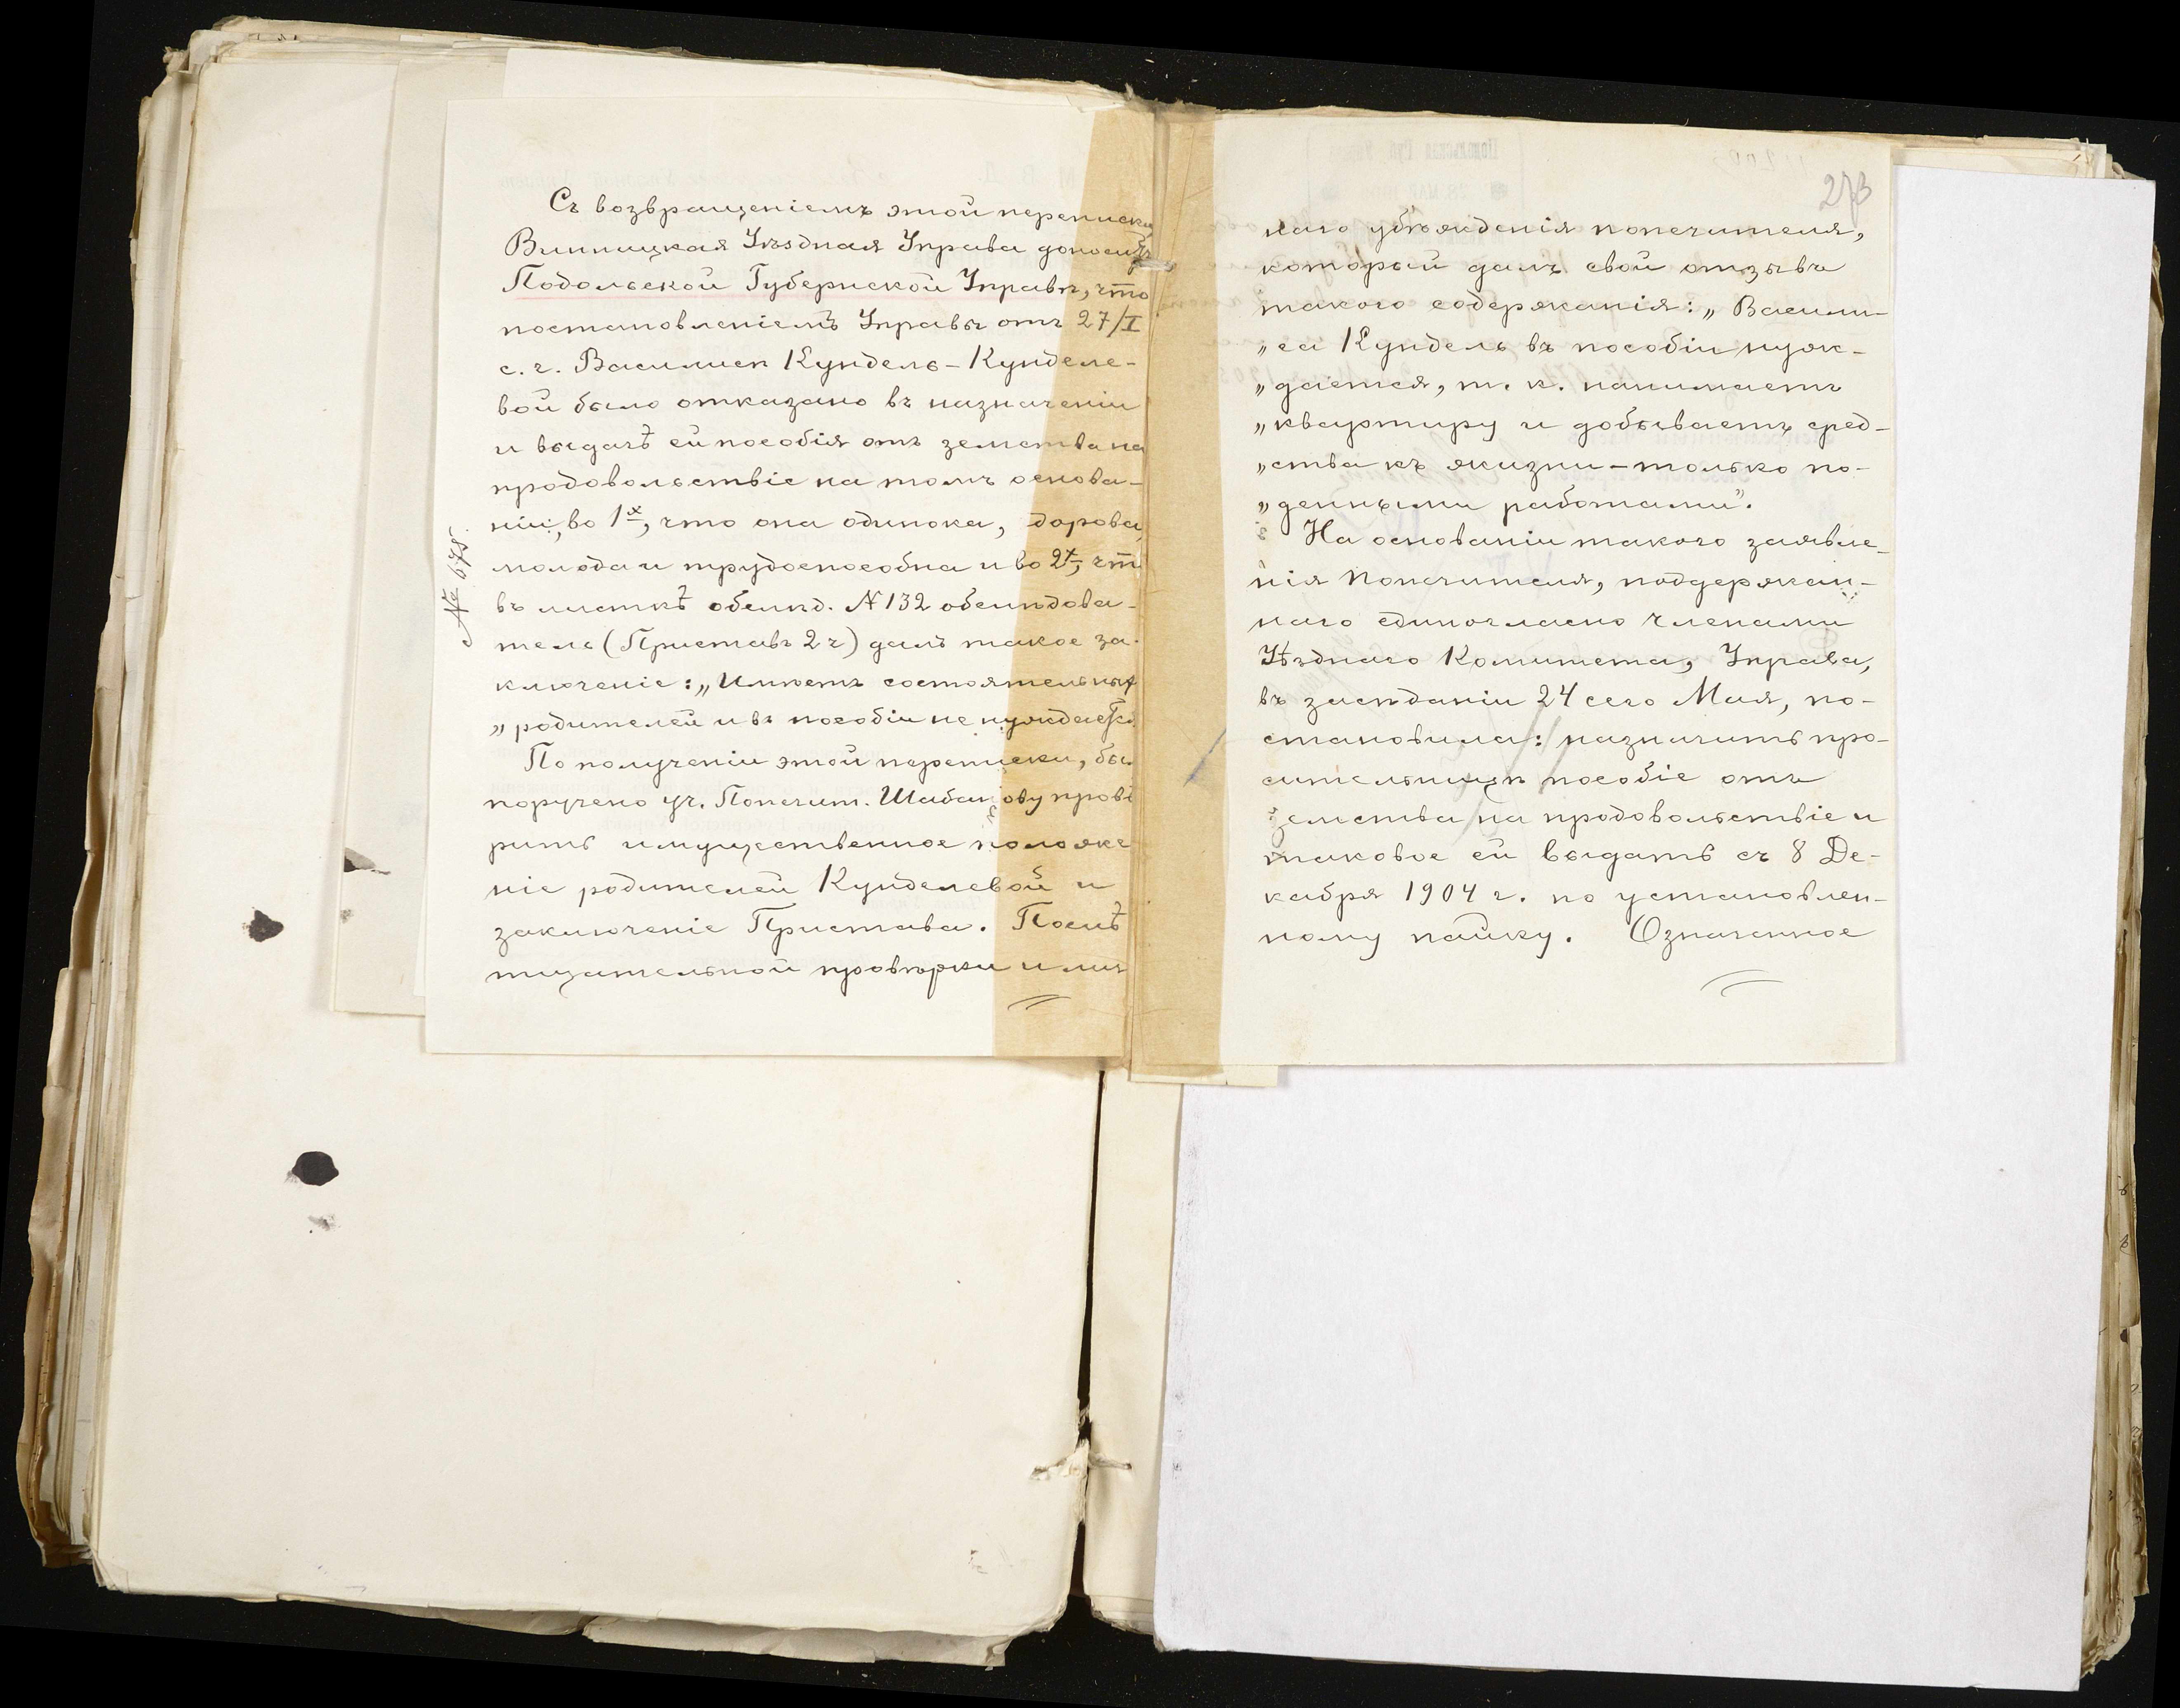 Съ возвращеніемъ этой переписки
Винницкая Уѣздная Управа доноситъ
Подольской Губернской Управѣ, что
постановленіемъ Управы отъ 27/I
с. г. Василисѣ Кундель-Кунделе-
вой было отказано въ назначеніи
и выдачѣ ей пособія отъ земства на
продовольствіе на томъ основа-
ніи, во 1х, что она одинока, здорова,
молода и трудоспособна и во 2х, что
въ листкѣ обслѣд. N 132 обслѣдова-
тель (Приставъ 2 ч) далъ такое за-
ключеніе: „Имѣетъ состоятельныхъ
„родителей и въ пособіи не нуждается.
По полученіи этой переписки, было
поручено уч. Попечит. Шабановскому провѣ
рить имущественное положе
ніе родителей Кунделевой и
заключеніе Пристава. Послѣ
тщательной провѣрки и лич
№ 678.
273
наго убѣжденія попечителя,
который далъ свой отзывъ
такого содержанія: „Васили-
„са Кундель въ пособіи нуж-
„дается, т. к. нанимаетъ
„квартиру и добываетъ сред-
„ства къ жизни - только по-
„денными работами".
На основаніи такого заявле-
нія Попечителя, поддержан-
наго единогласно членами
Уѣзднаго Комитета, Управа,
въ засѣданіи 24 сего Мая, по-
становила: назначить про-
сительницѣ пособіе отъ
земства на продовольствіе и
таковое ей выдать съ 8 Де-
кабря 1904 г. по установлен-
ному пайку. Означенное